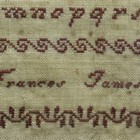 mnopqr
Frances James